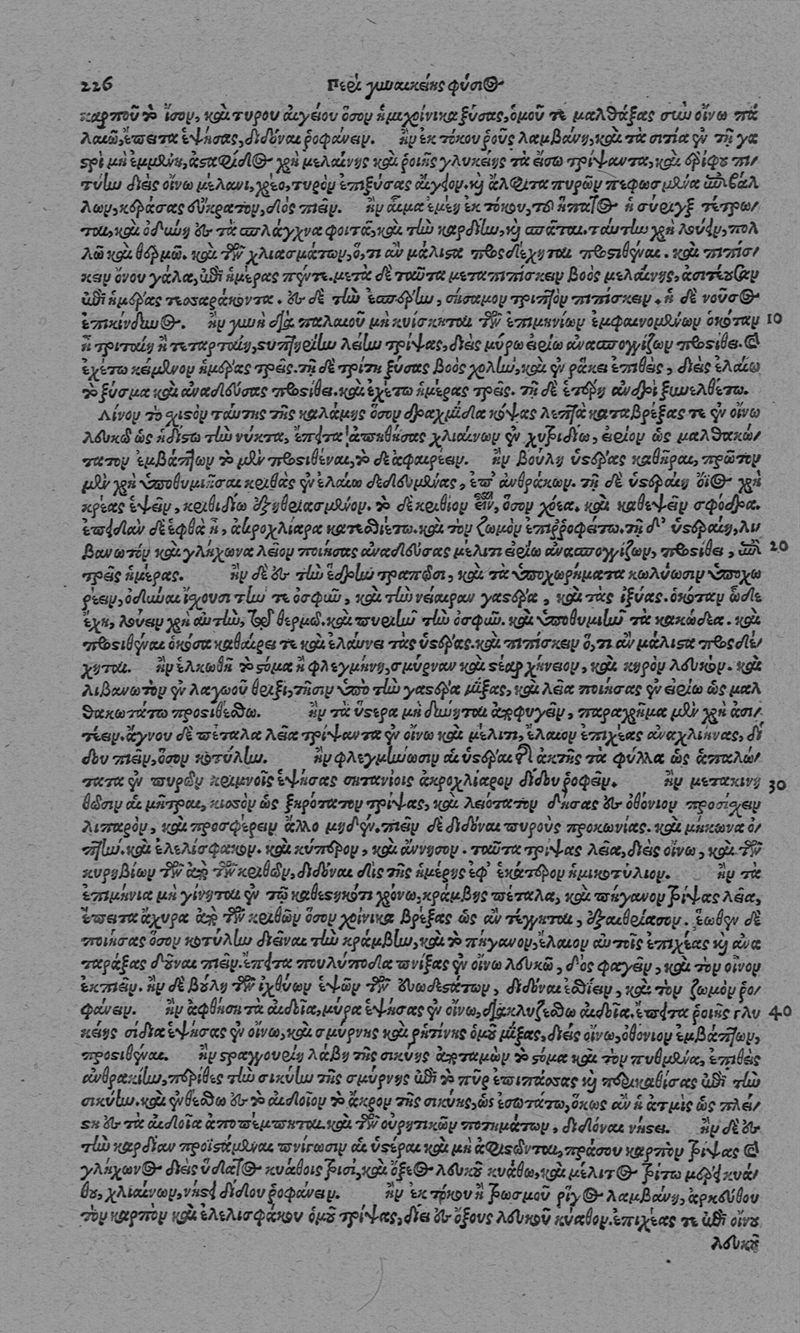 226 Περὶ γυναικείης φύσιος
καρποῦ τὸ ἴσον, καὶ τυροῦ αἰγείου ὅσον ἡμιχοίνικα ξύσας, ὁμοῦ τε μαλθάξας σὺν οἴνῳ πα
λαιῷ, ἔπειτα ἑψήσας, διδόναι ῥοφάνειν. ἢν ἐκ τόκου ῥοῦς λαμβάνῃ, καὶ τὰ σιτία ἐν τῇ γα
στρὶ μὴ ἐμμένῃ, ἀσταφίδος χρὴ μελαίνης καὶ ῥοιῆς γλυκείης τὰ εἴσω τρίψαντα, καὶ ἐρίφου πι/
τύην διεὶς οἴνῳ μέλανι, χρέο, τυρὸν ἐπιξύσας αἴγειον. καὶ ἄλφιτα πυρῶν πεφωσμένα παραβάλ
λων, κεράσας εὔκρατον, δὸς πιεῖν. ἢν αἷμα ἐμέῃ ἐκ τόκου, τοῦ ἥπατος ἡ σύριγξ τέτρω/
ται, καὶ ὀδύνη ἐς τὰ σπλάγχνα φοιτᾷ, καὶ τὴν καρδίην, καὶ σπᾶται. ταύτην χρὴ λούειν, πολ
λῷ καὶ θερμῷ. καὶ τῶν χλιασμάτων, ὅ, τι ἂν μάλιστα προσδέχηται προστιθέναι. καὶ πιπίσ/
κειν ὄνου γάλα, ἐπὶ ἡμέρας πέντε. μετὰ δὲ ταῦτα μεταπιπίσκειν βοὸς μελαίνης, ἀσιτέουσαν
ἐπὶ ἡμέρας τεσσαράκοντα. ἐς δὲ τὴν ἑσπέρην, σήσαμον τριπτὸν πιπίσκειν. ἡ δὲ νοῦσος
ἐπικίνδυνος. ἢν γυνὴ διὰ παλαιοῦ μὴ κυίσκηται τῶν ἐπιμηνίων ἐμφαινομένων ὁκόταν 10
ᾖ τριταίη ἢ τεταρταίη, στυπτηρίην λείην τρίψας, διεὶς μύρῳ εἰρίῳ ἀνασπογγίζων προστίθει. καὶ
ἐχέτω κείμενον ἡμέρας τρεῖς. τῇ δὲ τρίτῃ ξύσας βοὸς χολὴν, καὶ ἐν ῥάκει ἐπιθεὶς, διεὶς ἐλαίῳ
τὸ ξύσμα καὶ ἀναδεύσας προστίθει. καὶ ἐχέτω ἡμέρας τρεῖς. τῇ δὲ ἑτέρῃ ἀνδρὶ ξυνελθέτω.
Λίνον τὸ χιστὸν ταύτης τῆς καλάμης ὅσον δραχμίδα κόψας λεπτὰ καταβρέξας τε ἐν οἴνῳ
λευκῷ ὡς ἡδίστῳ τὴν νύκτα, ἔπειτα ἀπηθήσας χλιαίνων ἐν χυτριδίῳ, εἰρίον ὡς μαλθακώ/
τατον ἐμβάπτων τὸ μὲν προστιθέναι, τὸ δὲ ἀφαιρέειν. ἢν βούλῃ ὑστέρας καθῆραι, πρῶτον
μὲν χρὴ ὑποθυμιῆσαι κριθὰς ἐν ἐλαίῳ δεδευμένας, ἐπ' ἀνθράκων. τῇ δὲ ὑστεραίῃ ὄϊος χρὴ
κρέας ἑψεῖν, κριθιδίῳ ἐξῃθριασμένον. τὸ δὲ κριθίον ἔστω, ὅσον χόεα, καὶ καθεψεῖν σφόδρα.
ἐπειδὰν δὲ ἑφθὰ ᾖ, ἀκροχλίαρα κατεσθίετω. καὶ τὸν ζωμὸν ἐπιῤῥοφείτω. τῇ δ' ὑστεραίῃ, λι/
βανωτὸν καὶ γλήχωνα λεῖον ποιήσας ἀναδεύσας μέλιτι εἰρίῳ ἀνασπογγίζων, προστίθει, ἐπὶ 20
τρεῖς ἡμέρας. ἢν δὲ ἐς τὴν ἕδρην τραπῶσι, καὶ τὰ ὑποχωρήματα κωλύωσιν ὑποχω
ρέειν, ὀδύναι ἴχουσι τήν τε ὀσφῦν, καὶ τὴν νείαιραν γαστέρα, καὶ τὰς ἰξύας. ὁκόταν ὧδε
ἔχῃ, λούειν χρὴ αὐτὴν, πολλῷ θερμῷ. καὶ πυριῆν τὴν ὀσφῦν. καὶ ὑποθυμιῆν τὰ κακώδεα. καὶ
προστιθέναι ὁκόσα καθαίρει τε καὶ ἐλαύνει τὰς ὑστέρας. καὶ πιπίσκειν ὅ, τι ἂν μάλιστα προσδέ/
χηται. ἢν ἑλκωθῇ τὸ στόμα ἢ φλεγμήνῃ, σμύρναν καὶ στέαρ χήνειον, καὶ κηρὸν λευκόν. καὶ
λιβανωτὸν ἐν λαγωοῦ θριξὶ, τῇσιν ὑπὸ τὴν γαστέρα μίξας, καὶ λεῖα ποιήσας ἐν εἰρίῳ ὡς μαλ
θακωτάτῳ προστιθέσθω. ἢν τὰ ὕστερα μὴ δύνηται ἐκφυγεῖν, παραχρῆμα μὲν χρὴ ἀσι/
τέειν. ἄγνου δὲ πέταλα λεῖα τρίψαντα ἐν οἴνῳ καὶ μέλιτι, ἔλαιον ἐπιχέας ἀναχλιήνας, δί
δου πιεῖν, ὅσον κοτύλην. ἢν φλεγμήνωσιν αἱ ὑστέραι ἀκτῆς τὰ φύλλα ὡς ἁπαλώ/
τατα ἐν πυρῶν κρίμνοις ἑψήσας σητανίοις ἀκροχλίαρον δίδου ῥοφεῖν. ἢν μετακινη 30
θῶσιν αἱ μῆτραι, κισσὸν ὡς ξηρότατον τρίψας, καὶ λειότατον δήσας ἐς ὀθόνιον προσίχειν
λιπαρὸν, καὶ προσφέρειν ἄλλο μηδέν. πιεῖν δὲ διδόναι πυροὺς προκωνίας. καὶ μήκωνα ὀ/
πτήν. καὶ ἐλελίσφακον. καὶ κύπερον, καὶ ἄννησον. ταῦτα τρίψας λεῖα, διεὶς οἴνῳ, καὶ τῶν
κυρηβίων τῶν ἀπὸ τῶν κριθῶν, διδόναι δὶς τῆς ἡμέρης ἐφ' ἑκάτερον ἡμικοτύλιον. ἢν τὰ
ἐπιμήνια μὴ γίνηται ἐν τῷ καθεστηκότι χρόνῳ, κράμβης πέταλα, καὶ πήγανον τρίψας λεῖα,
ἔπειτα ἄχυρα ἀπὸ τῶν κριθῶν ὅσον χοίνικα βρέξας ὡς ἂν τέγγηται, ἐξαιθρίασον. ἕωθεν δὲ
ποιήσας ὅσον κοτύλην διεῖναι τὴν κράμβην, καὶ τὸ πήγανον, ἔλαιον αὐτοῖς ἐπιχέας καὶ ἀνα
ταράξας δοῦναι πιεῖν. ἔπειτα πουλύποδα πνίξας ἐν οἴνῳ λευκῷ, δὸς φαγεῖν, καὶ τὸν οἶνον
ἐκπιεῖν. ἢν δὲ βούλῃ τῶν ἰχθύων ἑψῶν τῶν εὐωδεστάτων, διδόναι ἐσθίειν, καὶ τὸν ζωμὸν ῥο/
φάνειν. ἢν ἀφθήσῃ τὰ αἰδοῖα, μύρα ἑψήσας ἐν οἴνῳ, διακλυζέσθω αἰδοῖα. ἔπειτα ῥοιῆς γλυ 40
κείης σίδια ἑψήσας ἐν οἴνῳ, καὶ σμύρνης καὶ ῥητίνης ὁμοῦ μίξας, διεὶς οἴνῳ, ὀθόνιον ἐμβάπτων,
προστιθέναι. ἢν στραγγουρίη λάβῃ τῆς σικύης ἀποταμὼν τὸ στόμα καὶ τὸν πυθμένα, ἐπιθεὶς
ἀνθρακίην, περίθες τὴν σικύην τῆς σμύρνης ἐπὶ τὸ πῦρ ἐπιπάσσας καὶ περικαθίσας ἐπὶ τὴν
σικύην. καὶ ἐνθέσθω ἐς τὸ αἰδοῖον τὸ ἄκρον τῆς σικύης, ὡς ἐσωτάτω, ὅκως ἂν ἡ ἀτμὶς ὡς πλεί/
στη ἐς τὰ αἰδοῖα ἀποπέμπηται. καὶ τῶν οὐρητικῶν ποτημάτων, διδόναι νῆστει. ἢν δὲ ἐς
τὴν καρδίαν προϊστάμεναι πνίγωσιν αἱ ὑστέραι καὶ μὴ ἀφιστῶνται, πράσου καρπὸν τρίψας καὶ
γλήχωνος διεὶς ὕδατος κυάθοις τρισὶ, καὶ ὄξεος λευκοῦ κυάθῳ, καὶ μέλιτος τρίτῳ μέρει κυά/
θου, χλιαίνων, νήστει δίδου ῥοφάνειν. ἢν ἐκ τόκου ἢ τρωσμοῦ ῥῖγος λαμβάνῃ, ἀρκεύθου
τὸν καρπὸν καὶ ἐλελισφάκου ὁμοῦ τρίψας, διεὶ ἐς ὄξους λευκοῦ κύαθον. ἐπιχέας τε ἐπὶ οἴνου
λευκοῦ